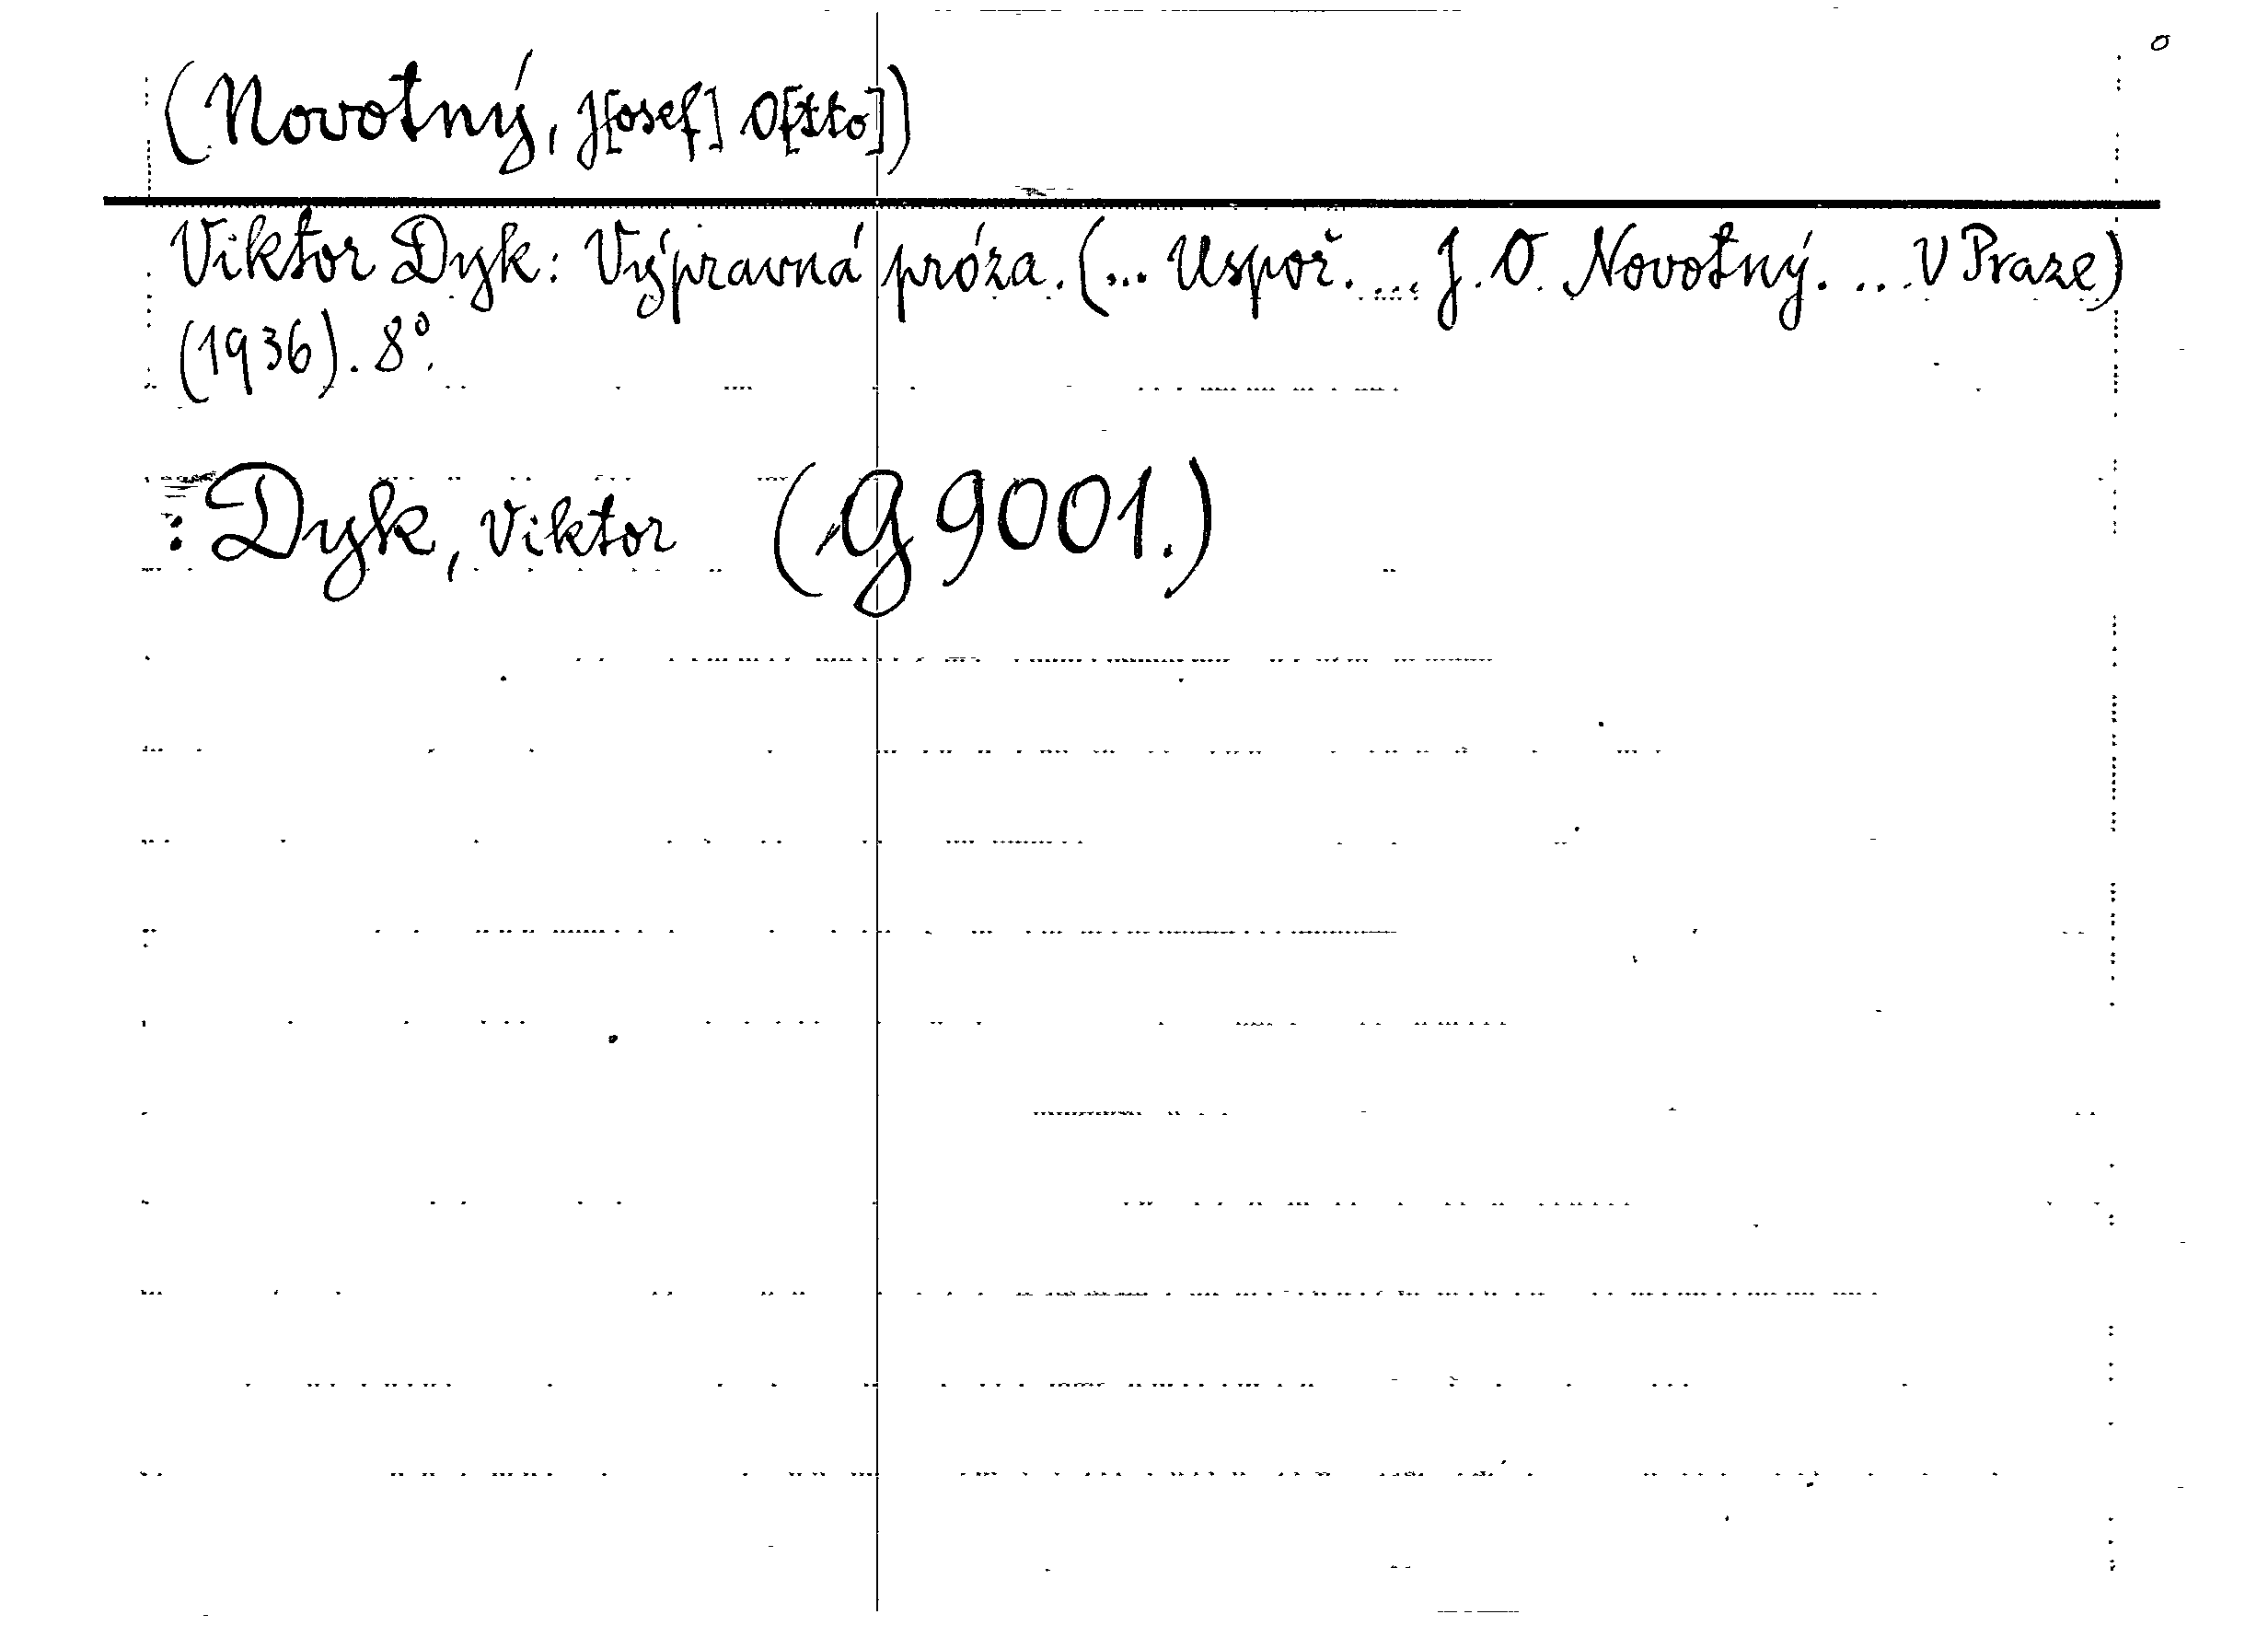 (Novotný, J[osef] O[tto])
Viktor Dyk: Výpravná próza. (... Uspoř. ... J. O. Novotný. ... V Praze)
(1936). 8°.
: Dyk, Viktor (G 9001.)